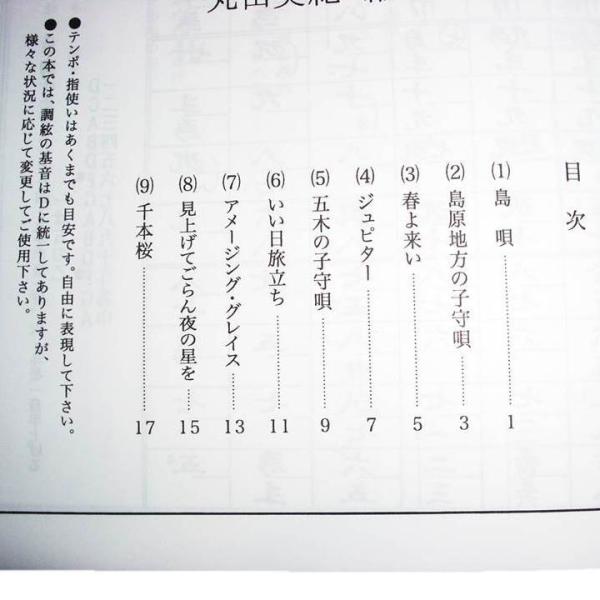 目次
(1) 島唄 1
(2) 島原地方の子守唄 3
(3) 春よ来い 5
(4) ジュピター 7
(5) 五木の子守唄 9
(6) いい日旅立ち 11
(7) アメージング・グレイス 13
(8) 見上げてごらん夜の星を 15
(9) 千本桜 17
●テンポ・指使いはあくまでも目安です。自由に表現して下さい。
●この本では、調絃の基音はDに統一してありますが、
様々な状況に応じて変更してご使用下さい。